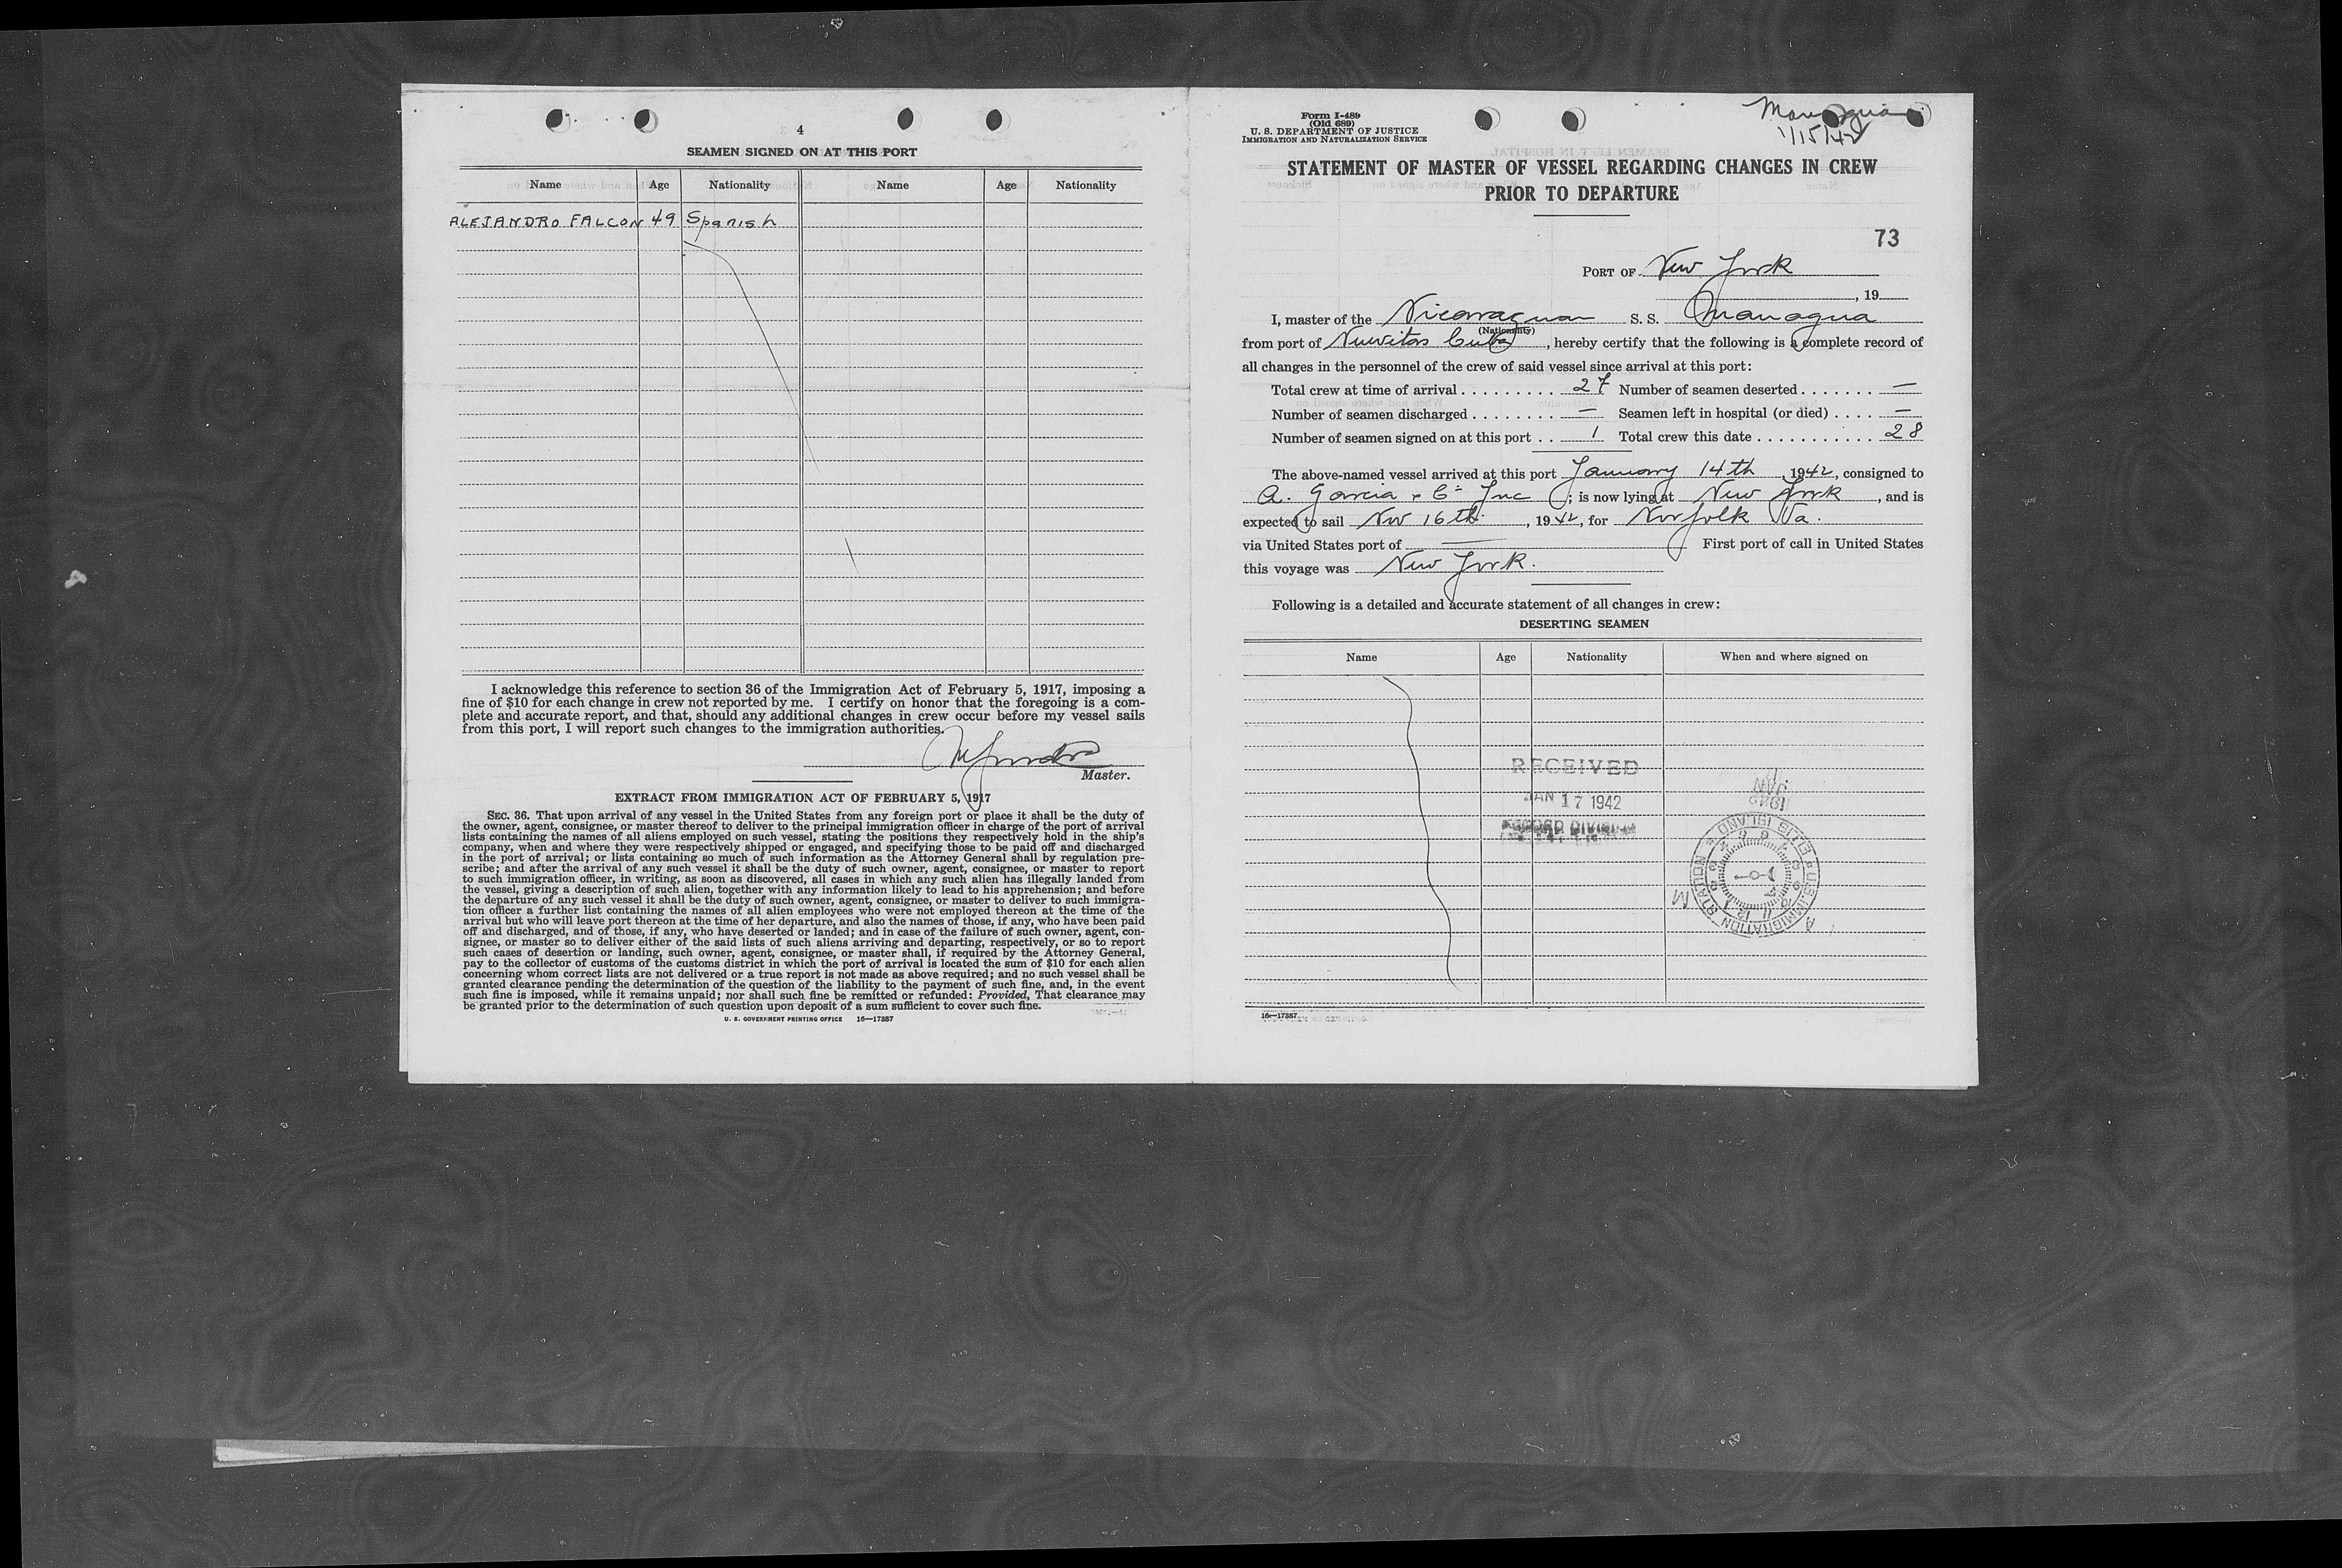 4
SEAMEN SIGNED ON AT THIS PORT
Name Age Nationality Name Age Nationality
ALEJANDRO FALCON 49 Spanish
I acknowledge this reference to section 36 of the Immigration Act of February 5, 1917, imposing a
fine of $10 for each change in crew not reported by me. I certify on honor that the foregoing is a com-
plete and accurate report, and that, should any additional changes in crew occur before my vessel sails
from this port, I will report such changes to the immigration authorities.
Master.
EXTRACT FROM IMMIGRATION ACT OF FEBRUARY 5, 1917
SEC. 36. That upon arrival of any vessel in the United States from any foreign port or place it shall be the duty of
the owner, agent, consignee, or master thereof to deliver to the principal immigration officer in charge of the port of arrival
lists containing the names of all aliens employed on such vessel, stating the positions they respectively hold in the ship's
company, when and where they were respectively shipped or engaged, and specifying those to be paid off and discharged
in the port of arrival; or lists containing so much of such information as the Attorney General shall by regulation pre-
scribe; and after the arrival of any such vessel it shall be the duty of such owner, agent, consignee, or master to report
to such immigration officer, in writing, as soon as discovered, all cases in which any such alien has illegally landed from
the vessel, giving a description of such alien, together with any information likely to lead to his apprehension; and before
the departure of any such vessel it shall be the duty of such owner, agent, consignee, or master to deliver to such immigra-
tion officer a further list containing the names of all alien employees who were not employed thereon at the time of the
arrival but who will leave port thereon at the time of her departure, and also the names of those, if any, who have been paid
off and discharged, and of those, if any, who have deserted or landed; and in case of the failure of such owner, agent, con-
signee, or master so to deliver either of the said lists of such aliens arriving and departing, respectively, or so to report
such cases of desertion or landing, such owner, agent, consignee, or master shall, if required by the Attorney General,
pay to the collector of customs of the customs district in which the port of arrival is located the sum of $10 for each alien
concerning whom correct lists are not delivered or a true report is not made as above required; and no such vessel shall be
granted clearance pending the determination of the question of the liability to the payment of such fine, and, in the event
such fine is imposed, while it remains unpaid; nor shall such fine be remitted or refunded: Provided, That clearance may
be granted prior to the determination of such question upon deposit of a sum sufficient to cover such fine.
U. S. GOVERNMENT PRINTING OFFICE 16—17387
Form I-489
(Old 689)
U. S. DEPARTMENT OF JUSTICE
IMMIGRATION AND NATURALIZATION SERVICE
Managua
1/15/42
STATEMENT OF MASTER OF VESSEL REGARDING CHANGES IN CREW
PRIOR TO DEPARTURE
73
PORT OF New York
, 19
I, master of the Nicaraguan S. S. Managua
(Nationality)
from port of Nuevitas Cuba, hereby certify that the following is a complete record of
all changes in the personnel of the crew of said vessel since arrival at this port:
Total crew at time of arrival . . . . . . . . . 27 Number of seamen deserted . . . . . . . —
Number of seamen discharged . . . . . . . . — Seamen left in hospital (or died) . . . . —
Number of seamen signed on at this port . . 1 Total crew this date . . . . . . . . . . . 28
The above-named vessel arrived at this port January 14th, 1942, consigned to
A. Garcia & Co Inc; is now lying at New York, and is
expected to sail Nov 16th, 1942, for Norfolk Va.
via United States port of — First port of call in United States
this voyage was New York.
Following is a detailed and accurate statement of all changes in crew:
DESERTING SEAMEN
Name Age Nationality When and where signed on
RECEIVED
JAN 17 1942
RECORD DIVISION
JAN
1942
U.S. IMMIGRATION STATION
ELLIS ISLAND
16—17387